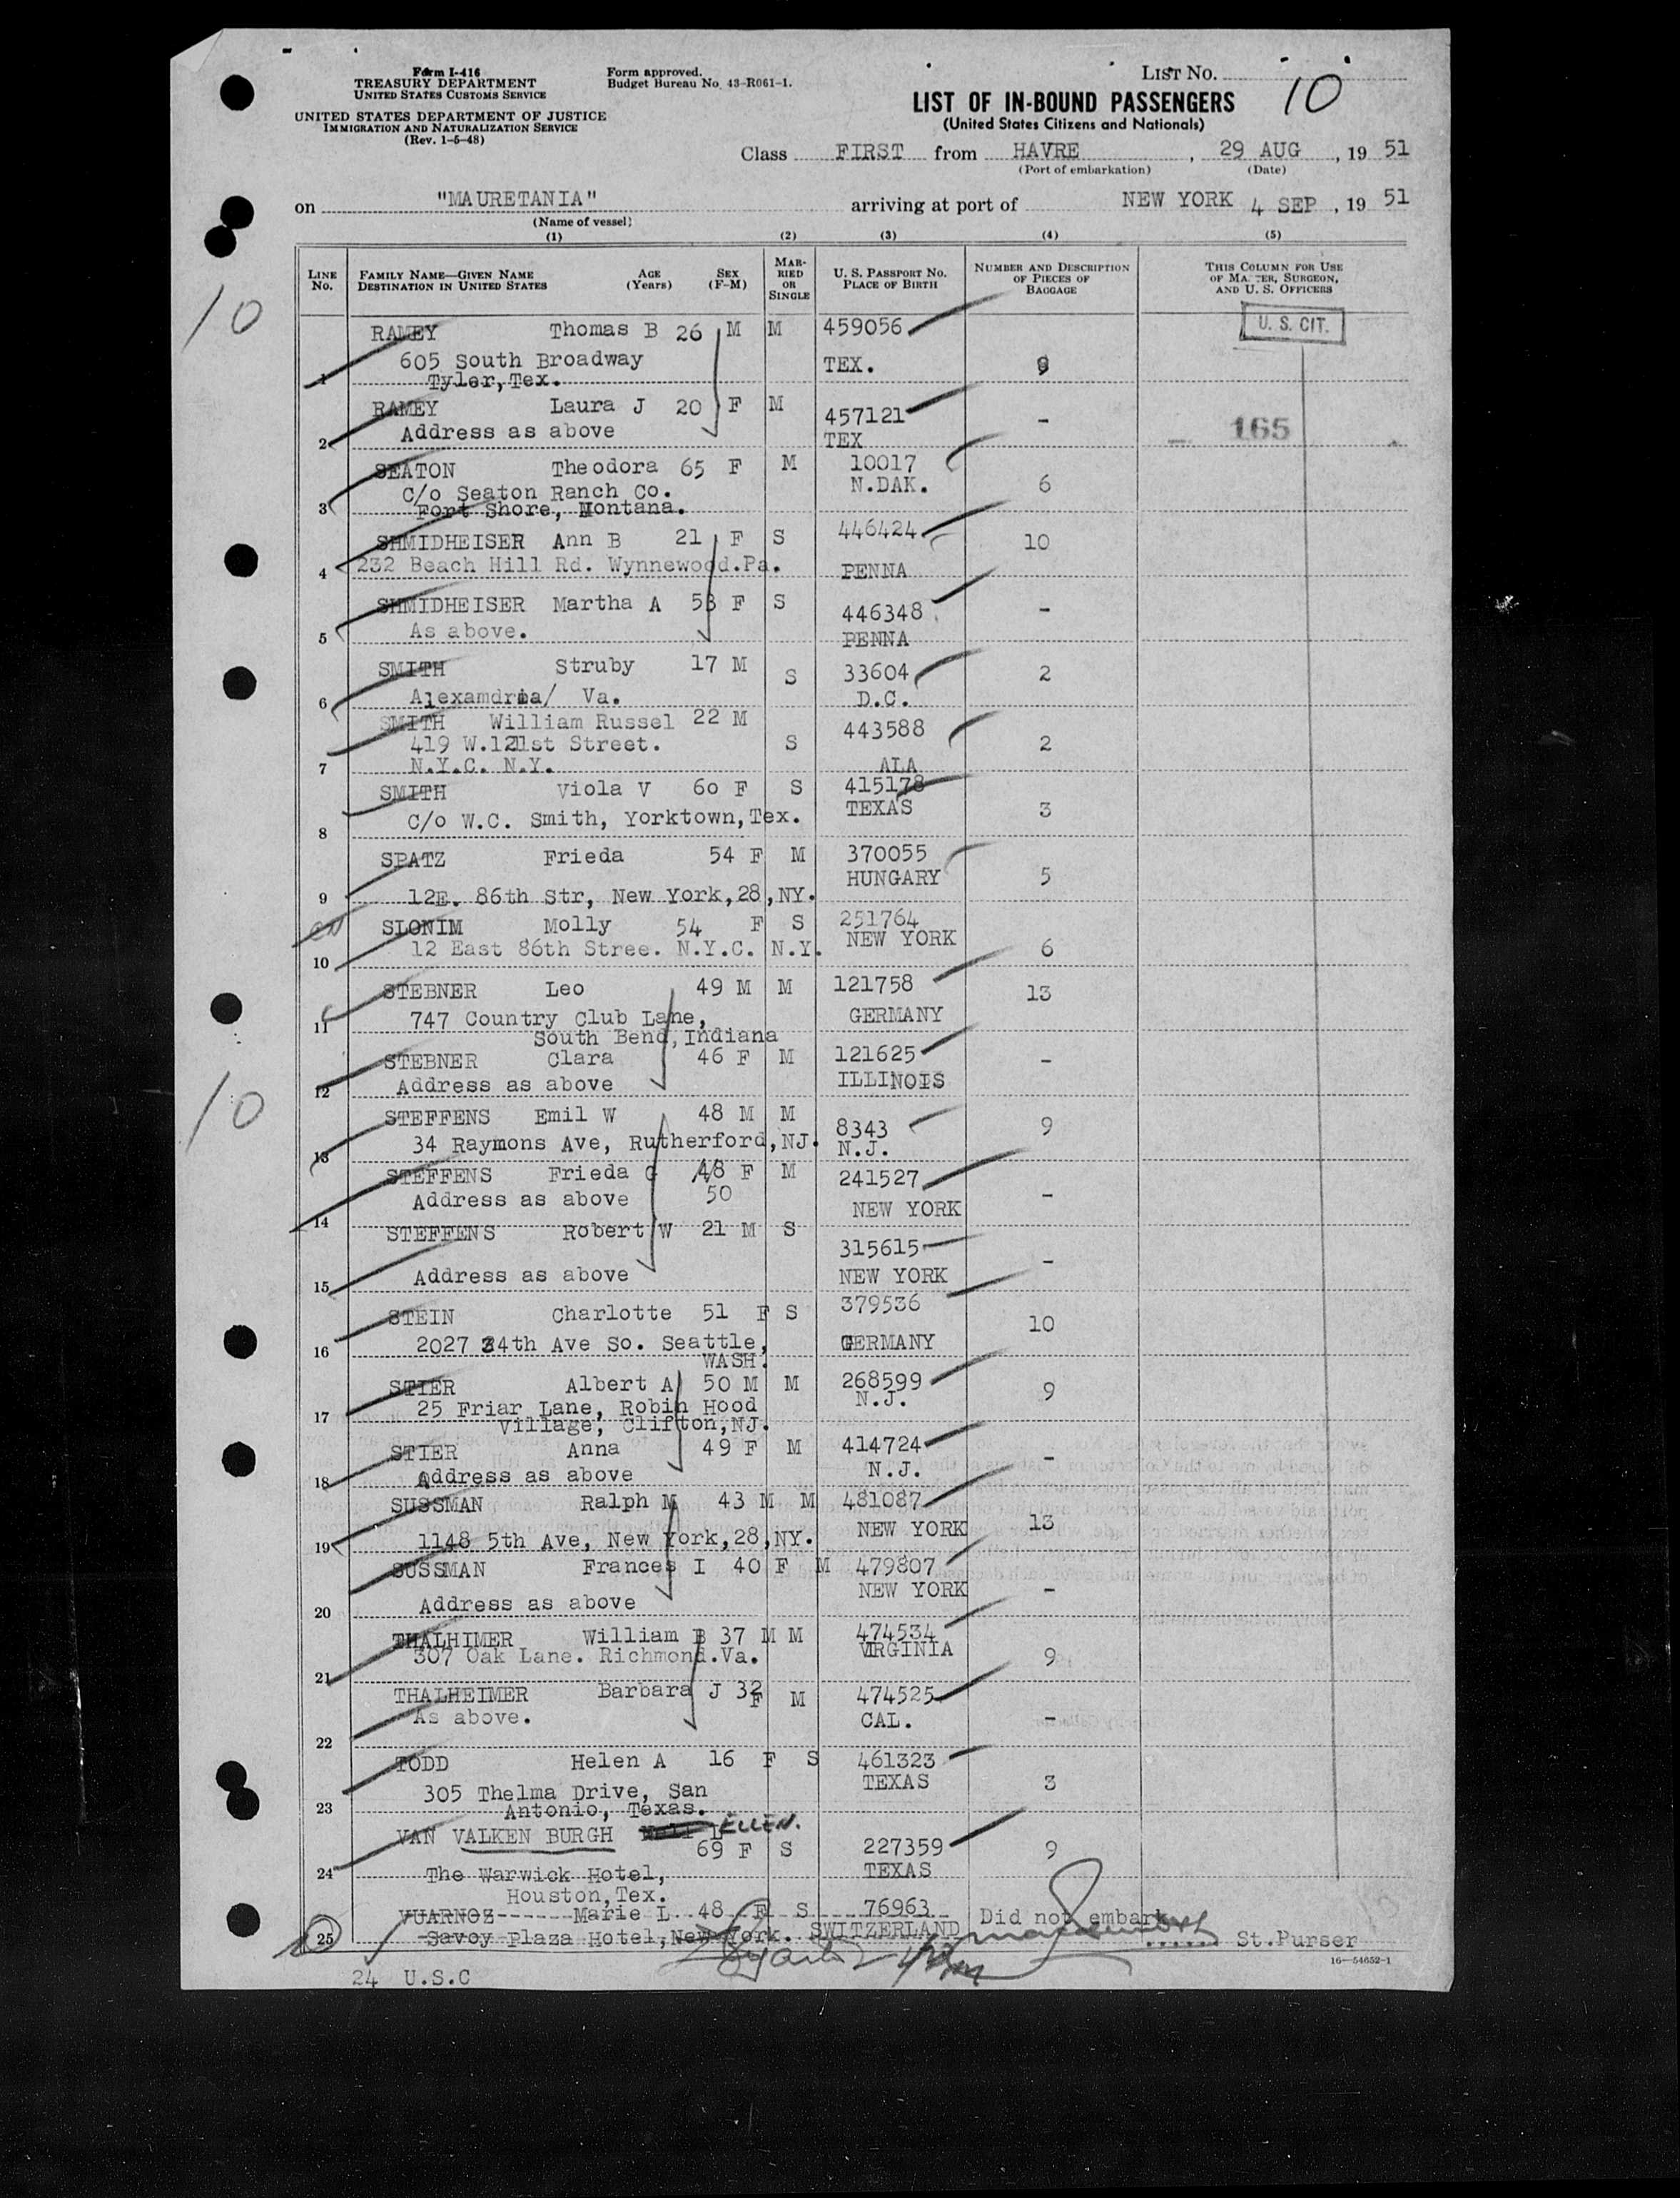 Form I-416
TREASURY DEPARTMENT
UNITED STATES CUSTOMS SERVICE
UNITED STATES DEPARTMENT OF JUSTICE
IMMIGRATION AND NATURALIZATION SERVICE
(Rev. 1-5-48)
Form approved.
Budget Bureau No. 43-R061-1.
LIST NO. 10
LIST OF IN-BOUND PASSENGERS
(United States Citizens and Nationals)
Class FIRST from HAVRE, 29 AUG, 19 51
(Port of embarkation) (Date)
on "MAURETANIA" arriving at port of NEW YORK 4 SEP, 19 51
(Name of vessel)
(1) (2) (3) (4) (5)
LINE NO. FAMILY NAME—GIVEN NAME DESTINATION IN UNITED STATES AGE (Years) SEX (F-M) MARRIED OR SINGLE U. S. PASSPORT NO. PLACE OF BIRTH NUMBER AND DESCRIPTION OF PIECES OF BAGGAGE THIS COLUMN FOR USE OF MASTER, SURGEON, AND U. S. OFFICERS
10
U. S. CIT.
RAMEY Thomas B 26 M M 459056
605 South Broadway TEX. 9
1 Tyler,Tex.
RAMEY Laura J 20 F M 457121 -
165
2 Address as above TEX
SEATON Theodora 65 F M 10017
C/o Seaton Ranch Co. N.DAK. 6
3 Fort Shore, Montana.
SHMIDHEISER Ann B 21 F S 446424 10
4 232 Beach Hill Rd. Wynnewood.Pa. PENNA
SHMIDHEISER Martha A 53 F S 446348 -
5 As above. PENNA
SMITH Struby 17 M S 33604 2
6 Alexamdria/ Va. D.C.
SMITH William Russel 22 M 443588
419 W.121st Street. S 2
7 N.Y.C. N.Y. ALA
SMITH Viola V 60 F S 415178
8 C/o W.C. Smith, Yorktown,Tex. TEXAS 3
SPATZ Frieda 54 F M 370055
HUNGARY 5
9 12E. 86th Str, New York,28,NY.
SLONIM Molly 54 F S 251764
10 12 East 86th Stree. N.Y.C. N.Y. NEW YORK 6
STEBNER Leo 49 M M 121758 13
11 747 Country Club Lane, GERMANY
South Bend,Indiana
STEBNER Clara 46 F M 121625 -
12 Address as above ILLINOIS
10
STEFFENS Emil W 48 M M 8343 9
13 34 Raymons Ave, Rutherford,NJ. N.J.
STEFFENS Frieda G 48 F M 241527
14 Address as above 50 NEW YORK -
STEFFENS Robert W 21 M S 315615 -
15 Address as above NEW YORK
STEIN Charlotte 51 F S 379536 10
16 2027 34th Ave So. Seattle, GERMANY
WASH.
STIER Albert A 50 M M 268599 9
17 25 Friar Lane, Robin Hood N.J.
Village, Clifton,NJ.
STIER Anna 49 F M 414724 -
18 Address as above N.J.
SUSSMAN Ralph M 43 M M 481087 13
19 1148 5th Ave, New York,28,NY. NEW YORK
SUSSMAN Frances I 40 F M 479807 -
20 Address as above NEW YORK
THALHIMER William B 37 M M 474534
21 307 Oak Lane. Richmond.Va. VIRGINIA 9
THALHEIMER Barbara J 32 F M 474525
22 As above. CAL. -
TODD Helen A 16 F S 461323
305 Thelma Drive, San TEXAS 3
23 Antonio, Texas.
VAN VALKEN BURGH ELLEN.
69 F S 227359 9
24 The Warwick Hotel, TEXAS
Houston,Tex.
VUARNOZ------Marie L 48 F S 76963 Did not embark
25 Savoy Plaza Hotel,New York. SWITZERLAND ...... St.Purser
24 U.S.C
16—54652-1